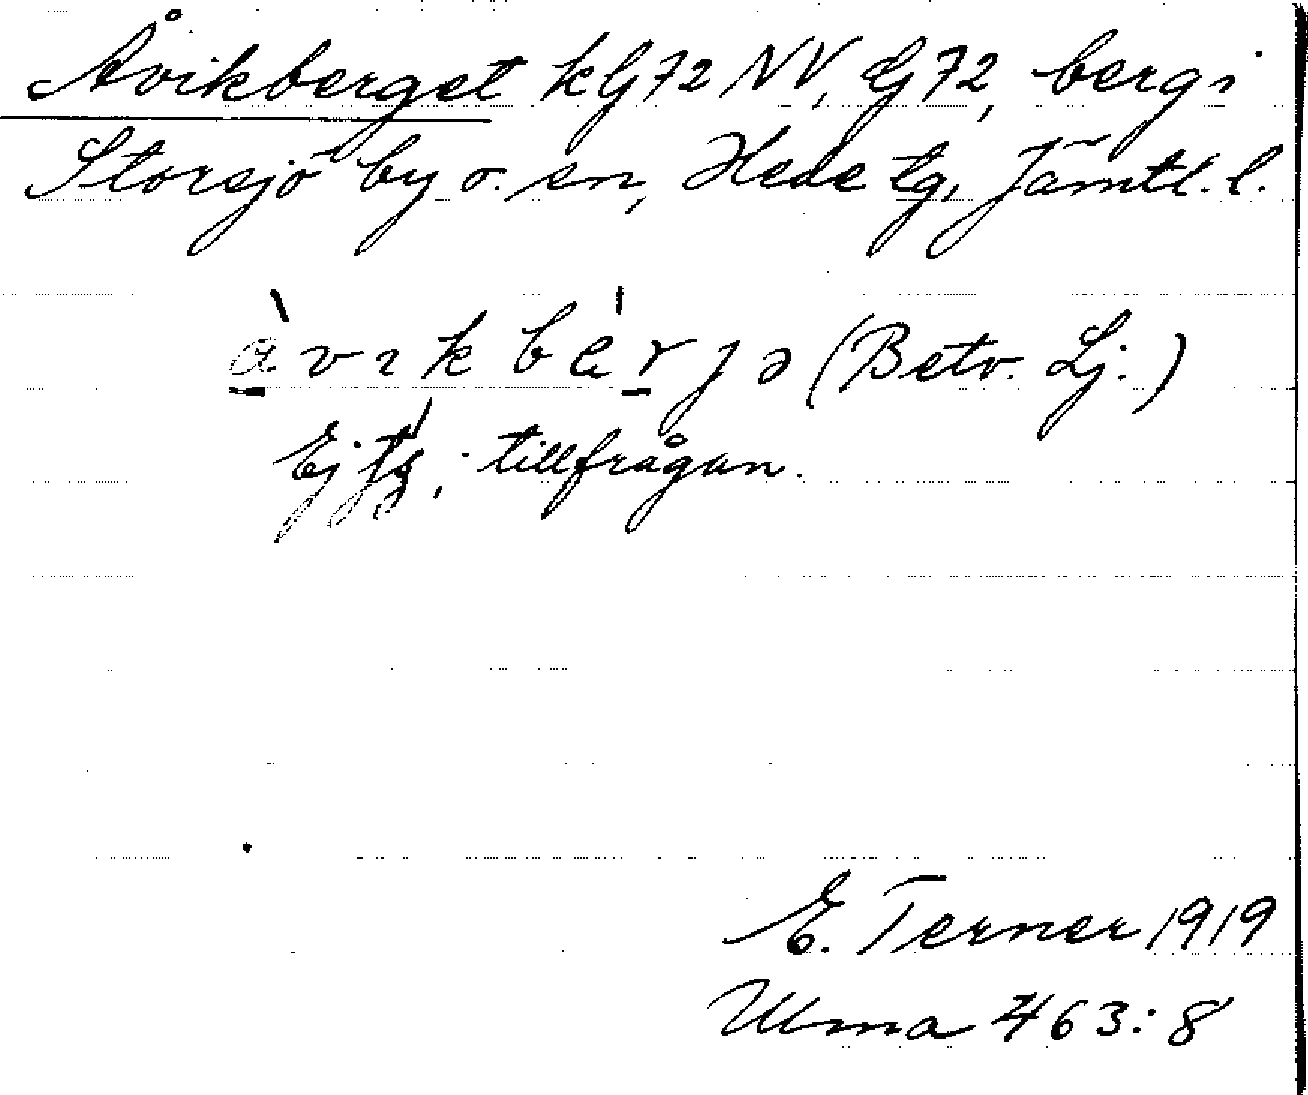 Åvikberget kG72 NV, G72, berg i
Storsjö by o. sn, Hede tg, Jämtl. l.
àvikbérjə (Betv. Lj.)
Ej tillfrågan.
E. Terner 1919
Ulma 463:8